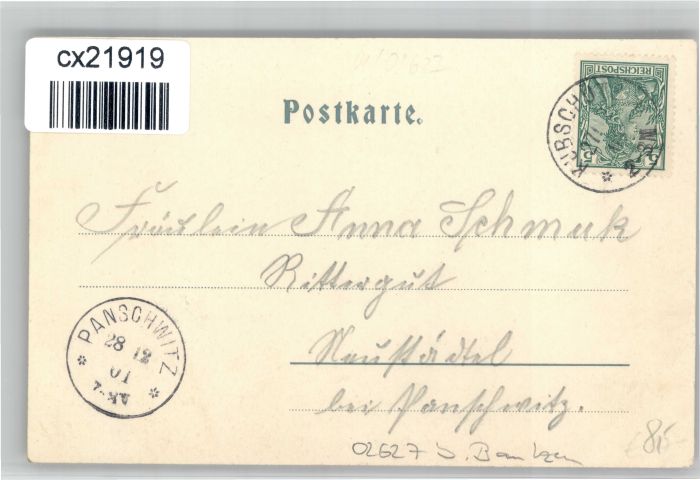 cx21919
Postkarte.
REICHSPOST
KUBSCHÜ
Fräulein Anna Schmuk
Rittergut
PANSCHWITZ
28 12
01
Neustädtel
bei Panschwitz.
02627 b. Bautzen
85